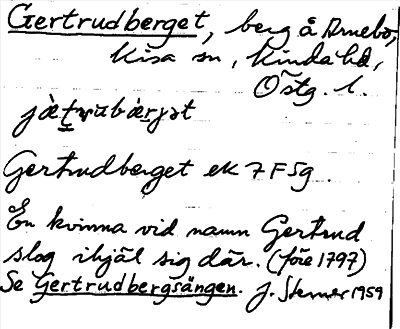 Gertrudberget, berg å Arnebo,
Kisa sn, Kinda hd,
Östg. l.
Gertrudberget ek 7 F 5g.
En kvinna vid namn Gertrud
slog ihjäl sig där. (före 1797)
Se Gertrudbergsängen. J. Sterner 1959